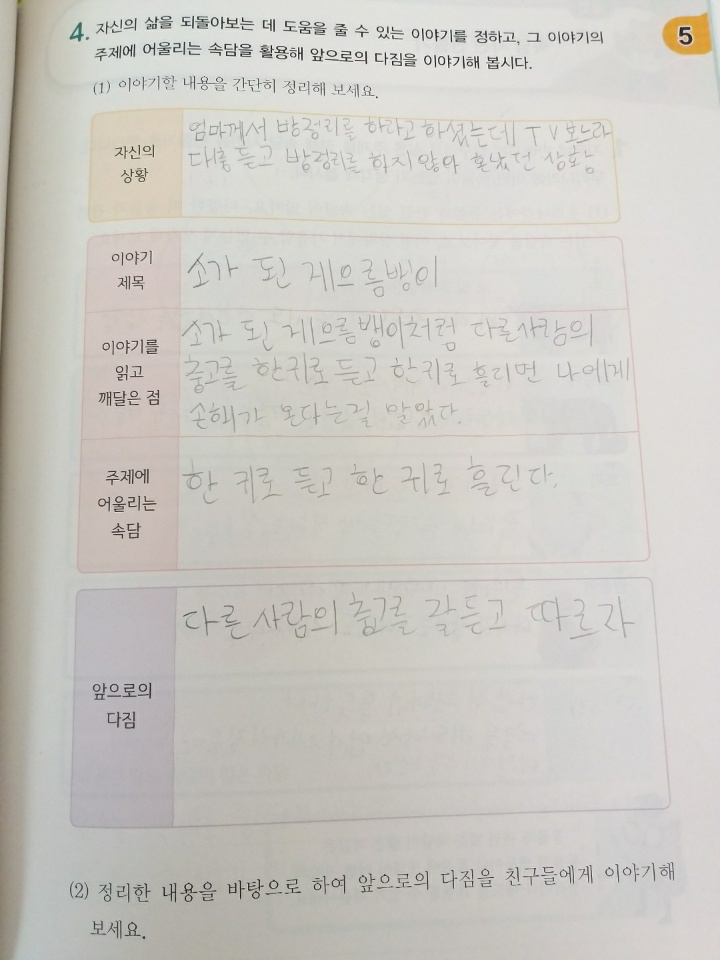 4. 자신의 삶을 되돌아보는 데 도움을 줄 수 있는 이야기를 정하고, 그 이야기의
주제에 어울리는 속담을 활용해 앞으로의 다짐을 이야기해 봅시다.
5
(1) 이야기할 내용을 간단히 정리해 보세요.
자신의
상황
엄마께서 방정리를 하라고 하셨는데 TV 보느라
대충 듣고 방정리를 하지 않아 혼났던 상황
이야기
제목
소가 된 게으름뱅이
이야기를
읽고
깨달은 점
소가 된 게으름뱅이처럼 다른사람의
충고를 한귀로 듣고 한귀로 흘리면 나에게
손해가 온다는걸 알았다.
주제에
어울리는
속담
한 귀로 듣고 한 귀로 흘린다.
앞으로의
다짐
다른 사람의 충고를 잘듣고 따르자
(2) 정리한 내용을 바탕으로 하여 앞으로의 다짐을 친구들에게 이야기해
보세요.